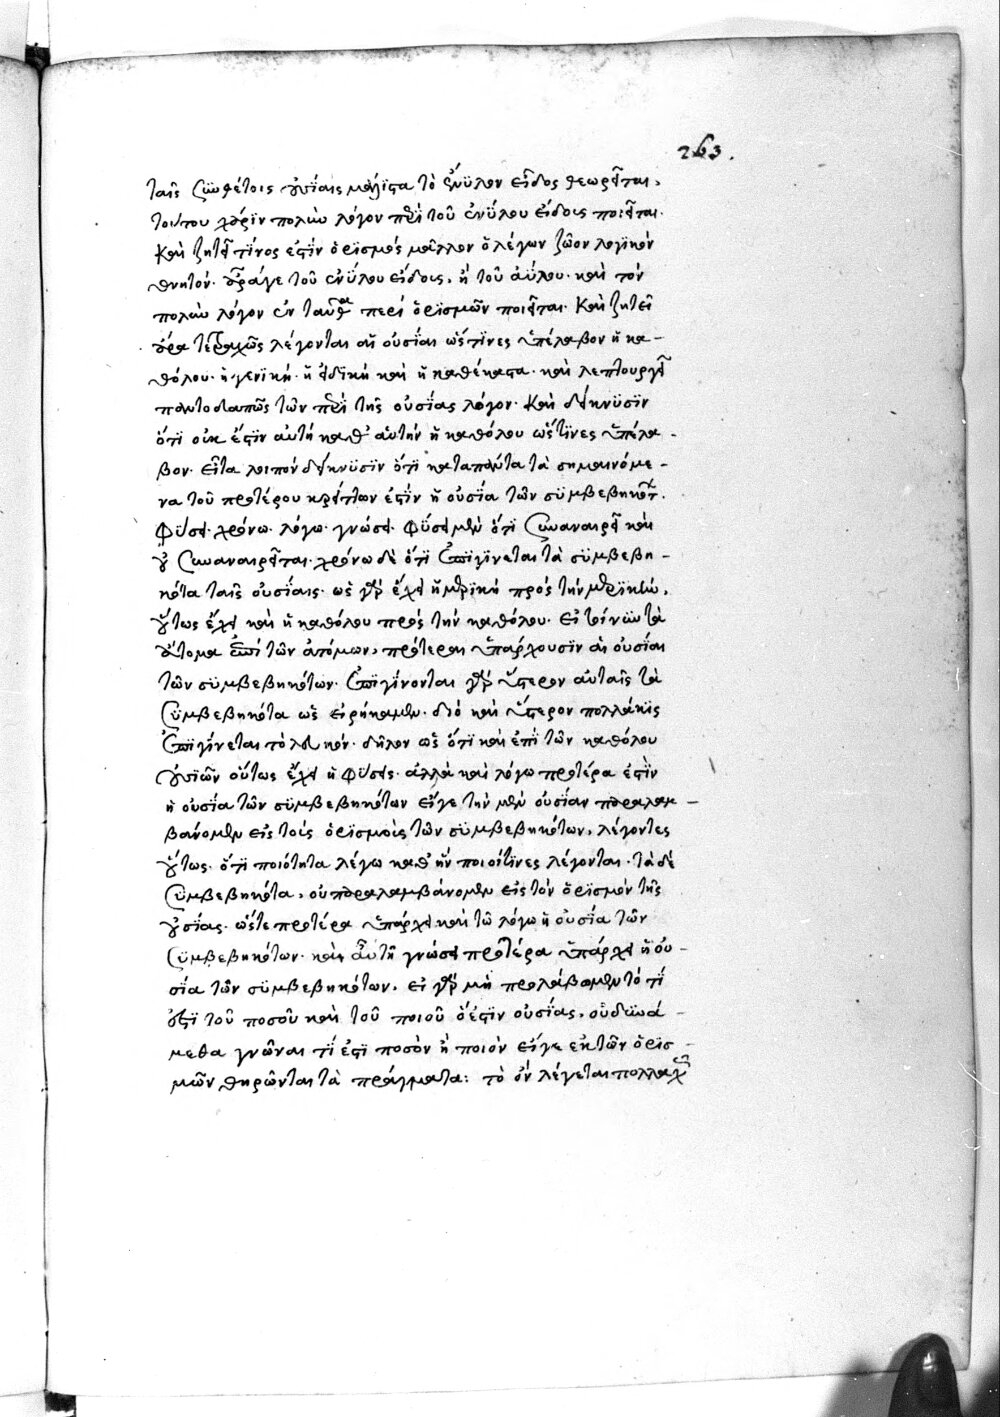 263.
ταῖς συνθέτοις οὐσίαις μάλιστα τὸ ἔνϋλον εἶδος θεωρεῖται.
τούτου χάριν πολὺν λόγον περὶ τοῦ ἐνύλου εἴδους ποιεῖται.
καὶ ζητεῖ τίνος ἐστὶν ὁρισμὸς μᾶλλον ὁ λέγων ζῶον λογικὸν
θνητόν. ἆράγε τοῦ ἐνύλου εἴδους, ἢ τοῦ ἀΰλου. καὶ τὸν
πολὺν λόγον ἐν ταῦθα περὶ ὁρισμῶν ποιεῖται. καὶ ζητεῖ
ἆρα τετραχῶς λέγονται αἱ οὐσίαι ὥς τινες ὑπέλαβον ἡ κα-
θόλου. ἡ γενική. ἡ εἰδικὴ καὶ ἡ καθέκαστα. καὶ λεπτουργεῖ
παντοδαπῶς τῶν περὶ τῆς οὐσίας λόγον. καὶ δείκνυσιν
ὅτι οὐκ ἔστιν αὐτὴ καθ' αὑτὴν ἡ καθόλου ὥς τινες ὑπέλα-
βον. εἶτα λοιπὸν δείκνυσιν ὅτι κατὰ πάντα τὰ σημαινόμε-
να τοῦ προτέρου κρείττων ἐστὶν ἡ οὐσία τῶν συμβεβηκότ.
φύσει. χρόνω. λόγω. γνώσει. φύσει μὲν ὅτι συναναιρεῖ καὶ
οὐ συναναιρεῖται. χρόνω δὲ ὅτι ἐπιγίνεται τὰ συμβεβη-
κότα ταῖς οὐσίαις. ὡς γὰρ ἔχει ἡ μερικὴ πρὸς τὴν μερικὴν,
οὕτως ἔχει καὶ ἡ καθόλου πρὸς τὴν καθόλου. εἰ τοίνυν τὰ
ἄτομα ἐπὶ τῶν ἀτόμων, πρότεραι ὑπάρχουσιν αἱ οὐσίαι
τῶν συμβεβηκότων. ἐπιγίνονται γὰρ ὕστερον αὐταῖς τὰ
συμβεβηκότα ὡς εἰρήκαμεν. διὸ καὶ ὕστερον πολλάκις
ἐπιγίνεται τὸ λευκόν. δῆλον ὡς ὅτι καὶ ἐπὶ τῶν καθόλου
οὐσιῶν οὕτως ἔχει ἡ φύσις. ἀλλὰ καὶ λόγω προτέρα ἐστὶν
ἡ οὐσία τῶν συμβεβηκότων εἴγε τὴν μὲν οὐσίαν παραλαμ-
βάνομεν εἰς τοὺς ὁρισμοὺς τῶν συμβεβηκότων, λέγοντες
οὕτως. ὅτι ποιότητα λέγω καθ' ἣν ποιοί τινες λέγονται. τὰ δὲ
συμβεβηκότα, οὐ παραλαμβάνομεν εἰς τὸν ὁρισμὸν τῆς
οὐσίας. ὥστε προτέρα ὑπάρχει καὶ τῶ λόγω ἡ οὐσία τῶν
συμβεβηκότων. καὶ αὐτῆ γνώσει προτέρα ὑπάρχει ἡ οὐ-
σία τῶν συμβεβηκότων. εἰ γὰρ μὴ προλάβωμεν τὸ τί
ἐστι τοῦ ποσοῦ καὶ τοῦ ποιοῦ ὅ ἐστιν οὐσίας, οὐ δυνά-
μεθα γνῶναι τί ἐστι ποσὸν ἢ ποιὸν εἴγε ἐκ τῶν ὁρισ-
μῶν θηρῶνται τὰ πράγματα: τὸ ὂν λέγεται πολλαχῶς